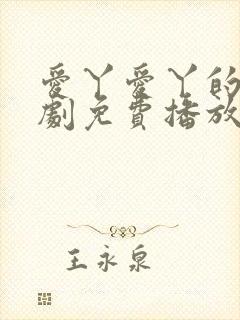 愛丫愛丫的
劇免費播放
王永泉